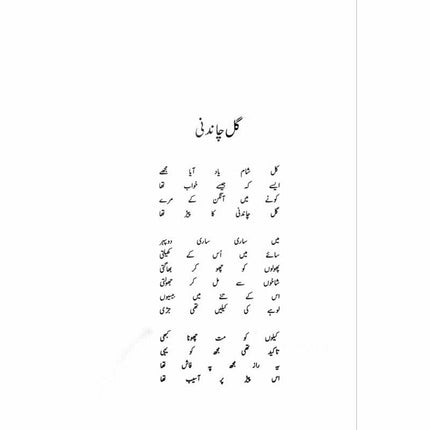 گل چاندنی
کل شام یاد آیا مجھے
ایسے کہ جیسے خواب تھا
کونے میں آنگن کے مرے
گل چاندنی کا پیڑ تھا
میں ساری ساری دوپہر
سائے میں اُس کے کھیلتی
پھولوں کو چھو کر بھاگتی
شاخوں سے مل کر جھولتی
اس کے تنے میں بیسیوں
لوہے کی کیلیں تھی جڑی
کیلوں کو مت چھونا کبھی
تاکید تھی مجھ کو یہی
یہ راز مجھ پہ فاش تھا
اس پیڑ پر آسیب تھا